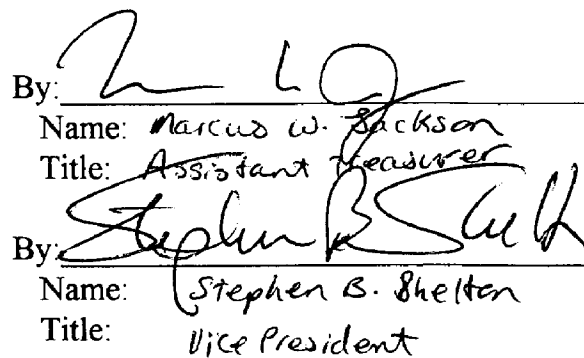 By:
Name: Marcus W. Jackson
Title: Assistant Treasurer
By: Stephen B Shelt
Name: Stephen B. Shelton
Title: Vice President